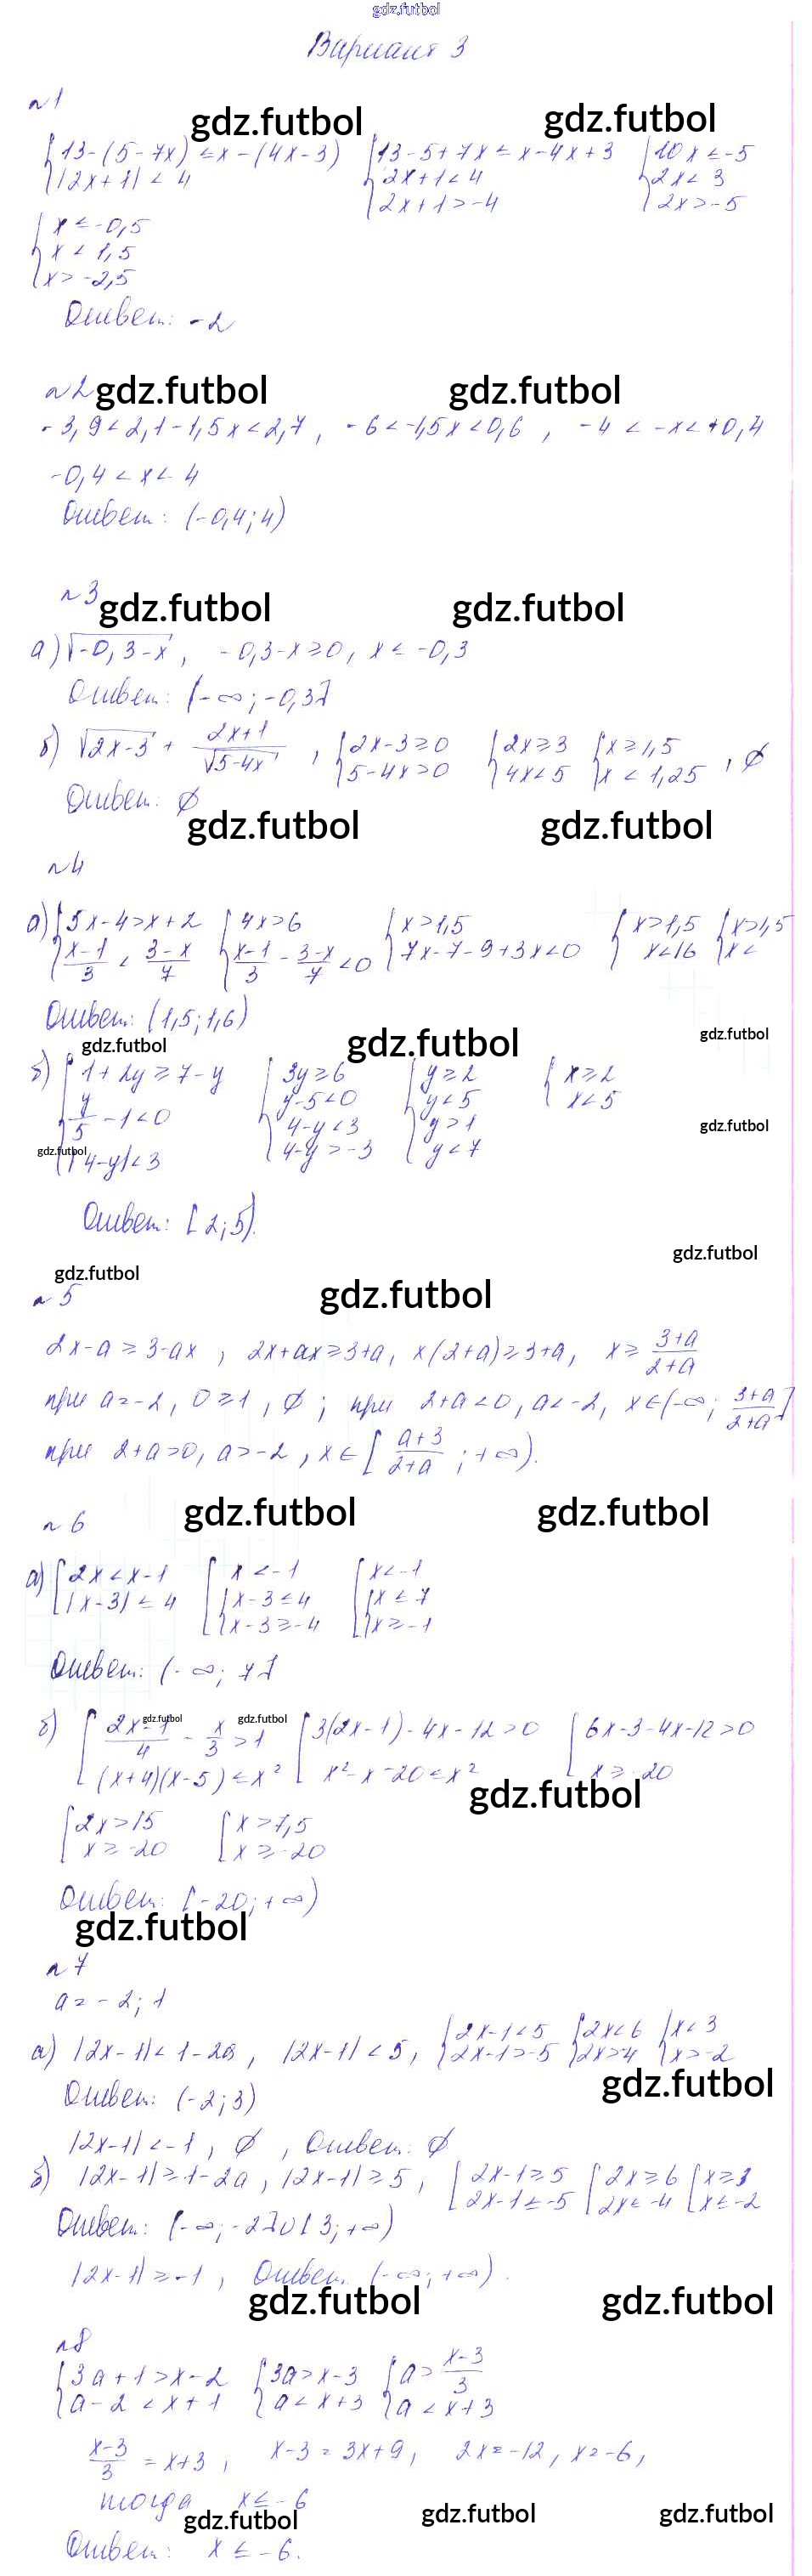 gdz.futbol
Вариант 3
n1
gdz.futbol gdz.futbol
{13-(5-7x) ≤ x-(4x-3) {13-5+7x ≤ x-4x+3 {10x ≤ -5
|2x+1| < 4 2x+1 < 4 2x < 3
2x+1 > -4 2x > -5
{x ≤ -0,5
x < 1,5
x > -2,5
Ответ: -2
n2 gdz.futbol gdz.futbol
-3,9 < 2,1-1,5x < 2,7, -6 < -1,5x < 0,6, -4 < -x < +0,4
-0,4 < x < 4
Ответ: (-0,4; 4)
n3 gdz.futbol gdz.futbol
а) √-0,3-x, -0,3-x ≥ 0, x ≤ -0,3
Ответ: (-∞; -0,3]
б) √2x-3 + (2x+1)/√5-4x, {2x-3 ≥ 0 {2x ≥ 3 {x ≥ 1,5
5-4x > 0 4x < 5 x < 1,25, ∅
Ответ: ∅
gdz.futbol gdz.futbol
n4
а) {5x-4 > x+2 {4x > 6 {x > 1,5 {x > 1,5 {x > 1,5
(x-1)/3 < (3-x)/7 (x-1)/3 - (3-x)/7 < 0 7x-7-9+3x < 0 x < 16 x <
Ответ: (1,5; 1,6)
gdz.futbol gdz.futbol gdz.futbol
б) {1+2y ≥ 7-y {3y ≥ 6 {y ≥ 2 {x ≥ 2
y/5 - 1 < 0 y-5 < 0 y < 5 x < 5
gdz.futbol
4-y < 3 y > 1
gdz.futbol |4-y| < 3 4-y > -3 y < 7
Ответ: [2; 5).
gdz.futbol
gdz.futbol gdz.futbol
n5
2x-a ≥ 3-ax, 2x+ax ≥ 3+a, x(2+a) ≥ 3+a, x ≥ (3+a)/(2+a)
при a=-2, 0 ≥ 1, ∅; при 2+a < 0, a < -2, x∈(-∞; (3+a)/(2+a)]
при 2+a > 0, a > -2, x∈[(a+3)/(2+a); +∞).
gdz.futbol gdz.futbol
n6
а) [2x < x-1 [x < -1 [x < -1
|x-3| ≤ 4 {x-3 ≤ 4 {x ≤ 7
x-3 ≥ -4 x ≥ -1
Ответ: (-∞; 7]
б) [(2x-1)/4 - x/3 > 1 [3(2x-1)-4x-12 > 0 [6x-3-4x-12 > 0
gdz.futbol gdz.futbol
(x+4)(x-5) ≤ x² x²-x-20 ≤ x² x ≥ -20
gdz.futbol
[2x > 15 [x > 7,5
x ≥ -20 x ≥ -20
Ответ: [-20; +∞)
gdz.futbol
n7
a = -2; 1
а) |2x-1| < 1-2a, |2x-1| < 5, {2x-1 < 5 {2x < 6 {x < 3
2x-1 > -5 2x > -4 x > -2
Ответ: (-2; 3) gdz.futbol
|2x-1| < -1, ∅, Ответ: ∅
б) |2x-1| ≥ 1-2a, |2x-1| ≥ 5, [2x-1 ≥ 5 [2x ≥ 6 [x ≥ 3
2x-1 ≤ -5 2x ≤ -4 x ≤ -2
Ответ: (-∞; -2]∪[3; +∞)
|2x-1| ≥ -1, Ответ: (-∞; +∞).
gdz.futbol gdz.futbol
n8
{3a+1 > x-2 {3a > x-3 {a > (x-3)/3
a-2 < x+1 a < x+3 a < x+3
(x-3)/3 = x+3, x-3 = 3x+9, 2x = -12, x = -6,
тогда x ≤ -6
gdz.futbol gdz.futbol gdz.futbol
Ответ: x ≤ -6.